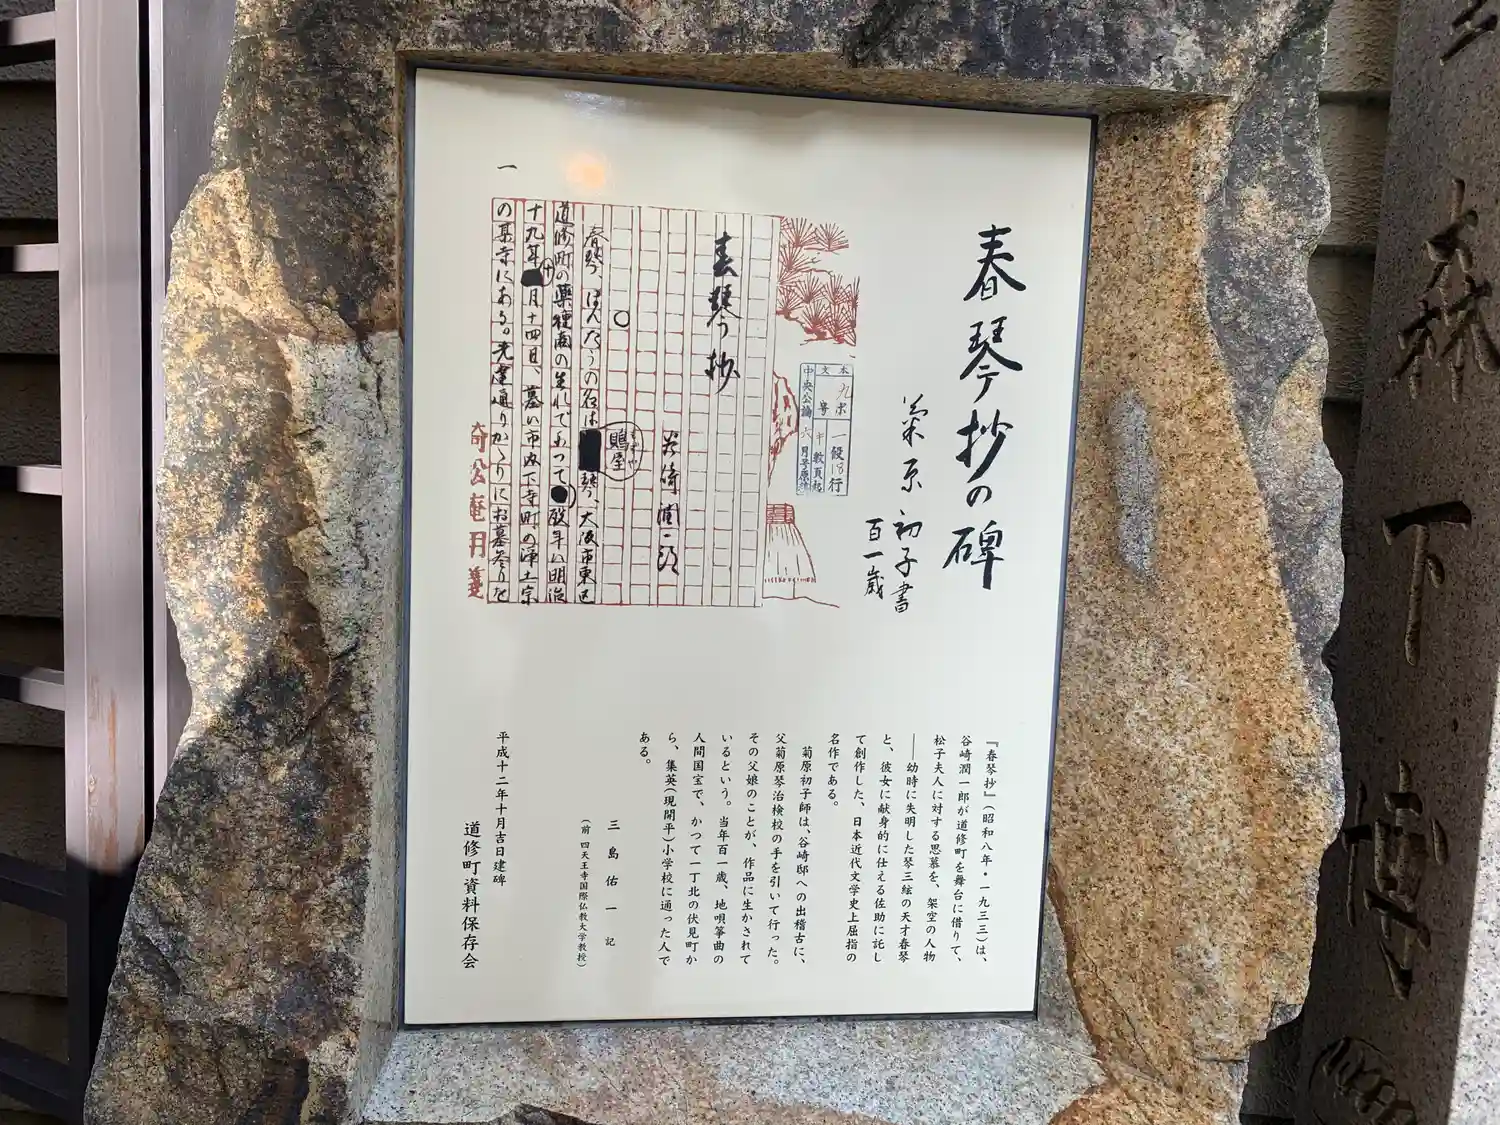 春琴抄の碑
菊原初子書
百一歳
本文
九ポ
一段18行
中央公論
六月号原稿
春琴抄
谷崎潤一郎
一
春琴、ほんたうの名は
鵙屋
琴、大阪市東区
道修町の薬種商の生れであつて
歿年は明治
十九年
十
月十四日、墓は市内下寺町の浄土宗
の某寺にある。先達通りかゝりにお墓参りを
奇公庵用箋
『春琴抄』(昭和八年・一九三三)は、
谷崎潤一郎が道修町を舞台に借りて、
松子夫人に対する思慕を、架空の人物
――幼時に失明した琴三絃の天才春琴
と、彼女に献身的に仕える佐助に託し
て創作した、日本近代文学史上屈指の
名作である。
菊原初子師は、谷崎邸への出稽古に、
父菊原琴治検校の手を引いて行った。
その父娘のことが、作品に生かされて
いるという。当年百一歳、地唄箏曲の
人間国宝で、かつて一丁北の伏見町か
ら、集英(現開平)小学校に通った人で
ある。
三島佑一 記
(前 四天王寺国際仏教大学教授)
平成十二年十月吉日建碑
道修町資料保存会
下
博